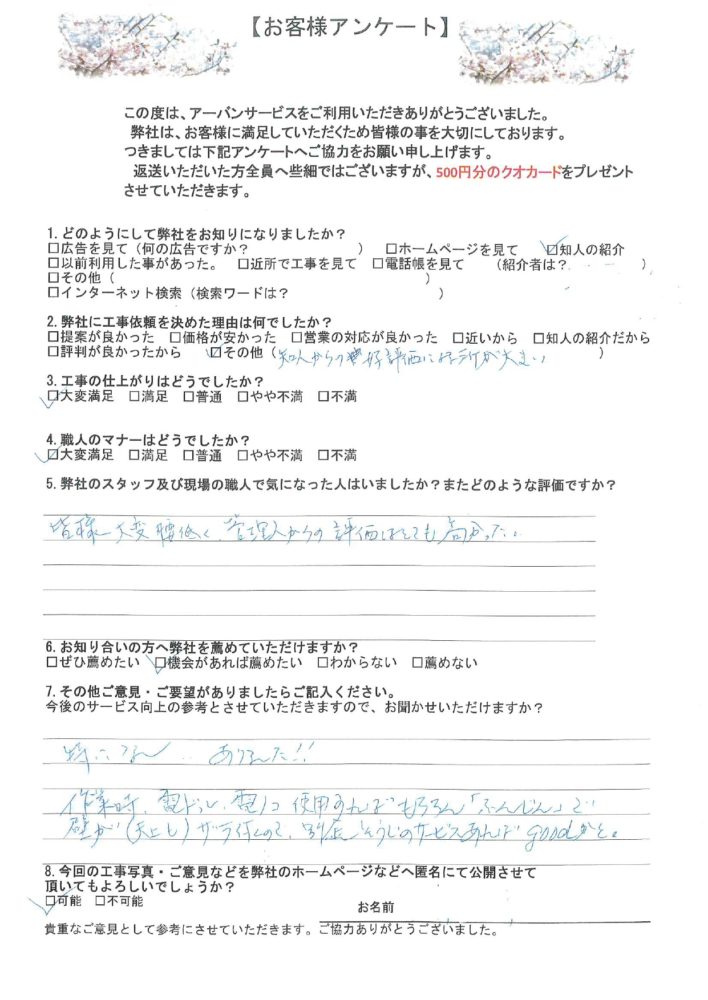 【お客様アンケート】
この度は、アーバンサービスをご利用いただきありがとうございました。
弊社は、お客様に満足していただくため皆様の事を大切にしております。
つきましては下記アンケートへご協力をお願い申し上げます。
返送いただいた方全員へ些細ではございますが、500円分のクオカードをプレゼント
させていただきます。
1.どのようにして弊社をお知りになりましたか？
□広告を見て（何の広告ですか？　　　　　　　　）　□ホームページを見て　☑知人の紹介
□以前利用した事があった。　□近所で工事を見て　□電話帳を見て　（紹介者は？　　　　　）
□その他（　　　　　　　　　　　　　　　　　　　　　　）
□インターネット検索（検索ワードは？　　　　　　　　　　）
2.弊社に工事依頼を決めた理由は何でしたか？
□提案が良かった　□価格が安かった　□営業の対応が良かった　□近いから　□知人の紹介だから
□評判が良かったから　☑その他（知人からの好評価に　所が大きい　）
3.工事の仕上がりはどうでしたか？
☑大変満足　□満足　□普通　□やや不満　□不満
4.職人のマナーはどうでしたか？
☑大変満足　□満足　□普通　□やや不満　□不満
5.弊社のスタッフ及び現場の職人で気になった人はいましたか？またどのような評価ですか？
皆様大変腰低く、管理人からの評価はとても高かった。
6.お知り合いの方へ弊社を薦めていただけますか？
□ぜひ薦めたい　☑機会があれば薦めたい　□わからない　□薦めない
7.その他ご意見・ご要望がありましたらご記入ください。
今後のサービス向上の参考とさせていただきますので、お聞かせいただけますか？
特になし‥ ありました!!
作業時、電ドル、電ノコ使用すればもちろん「ふんじん」で
壁が（天上も）ザラ付くので、別途そうじのサービスあれば goodかと。
8.今回の工事写真・ご意見などを弊社のホームページなどへ匿名にて公開させて
頂いてもよろしいでしょうか？
☑可能　□不可能
お名前
貴重なご意見として参考にさせていただきます。ご協力ありがとうございました。